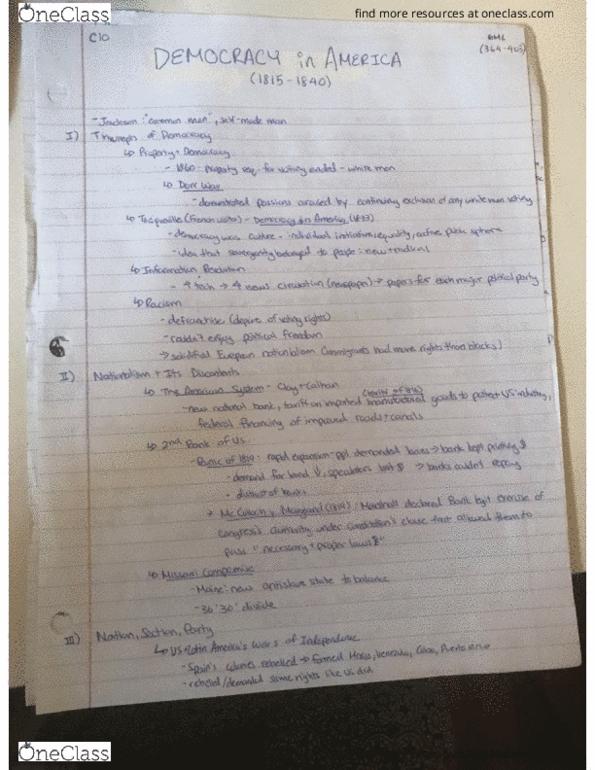 OneClass
find more resources at oneclass.com
C10
GML
(364-403)
DEMOCRACY in AMERICA
(1815-1840)
- Jackson: "common man", self-made man
I) Triumph of Democracy
↳ Property + Democracy
- 1860 - property req. for voting ended - white men
↳ Dorr War
- demonstrated passions aroused by continuing exclusion of any white men voting
↳ Tocqueville (French visitor) - Democracy in America
- democracy was culture - individual initiative, equality, active public sphere
- idea that sovereignty belonged to people: new + radical
↳ Information Revolution
- ↑ tech → ↑ news circulation (newspaper) → papers for each major political party
↳ Racism
- disfranchise (deprive of voting rights)
- couldn't enjoy political freedom
→ solidified European nationalism (immigrants had more rights than blacks)
II) Nationalism + Its Discontents
↳ The American System - Clay + Calhoun
(tariff of 1816)
- new national bank, tariff on imported manufactured goods to protect US industry,
federal financing of improved roads + canals
↳ 2nd Bank of US.
- Panic of 1819: rapid expansion - ppl demanded loans → bank kept printing $
- demand for land ↓, speculators lost $ → banks couldn't
- distrust of banks
McCulloch v. Maryland (1819): Marshall declared Bank legit exercise of
Congress's authority under Constitution's clause that allowed them to
pass "necessary + proper laws"
↳ Missouri Compromise
- Maine: new antislave state to balance
- 36°30' divide
III) Nation, Section, Party
↳ US + Latin America's Wars of Independence
- Spain's colonies rebelled → formed Venezuela, Puerto Rico
- rebelled/demanded same rights like US did
OneClass
OneClass